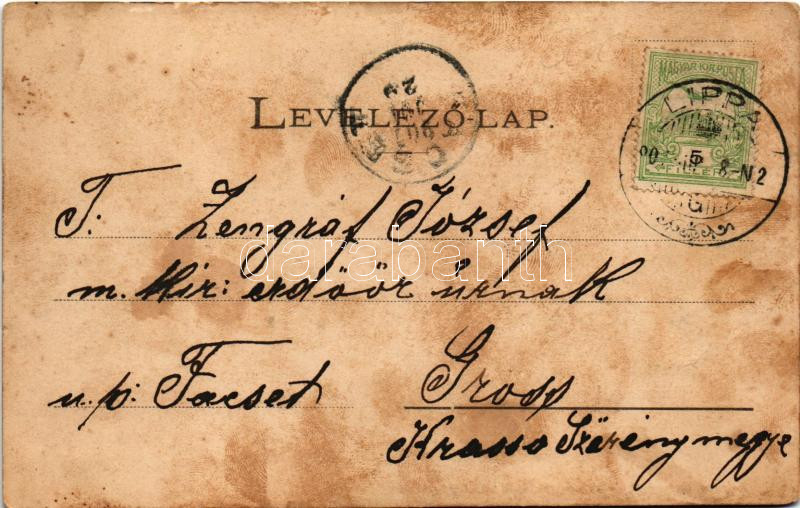 LEVELEZŐ-LAP.
MAGYAR KIR. POSTA
5
FILLÉR
LIPPA
T. Zengráf József
m. kir: erdöör úrnak
u. p. Facset Gross
Krasso Szörény megye
darabanth